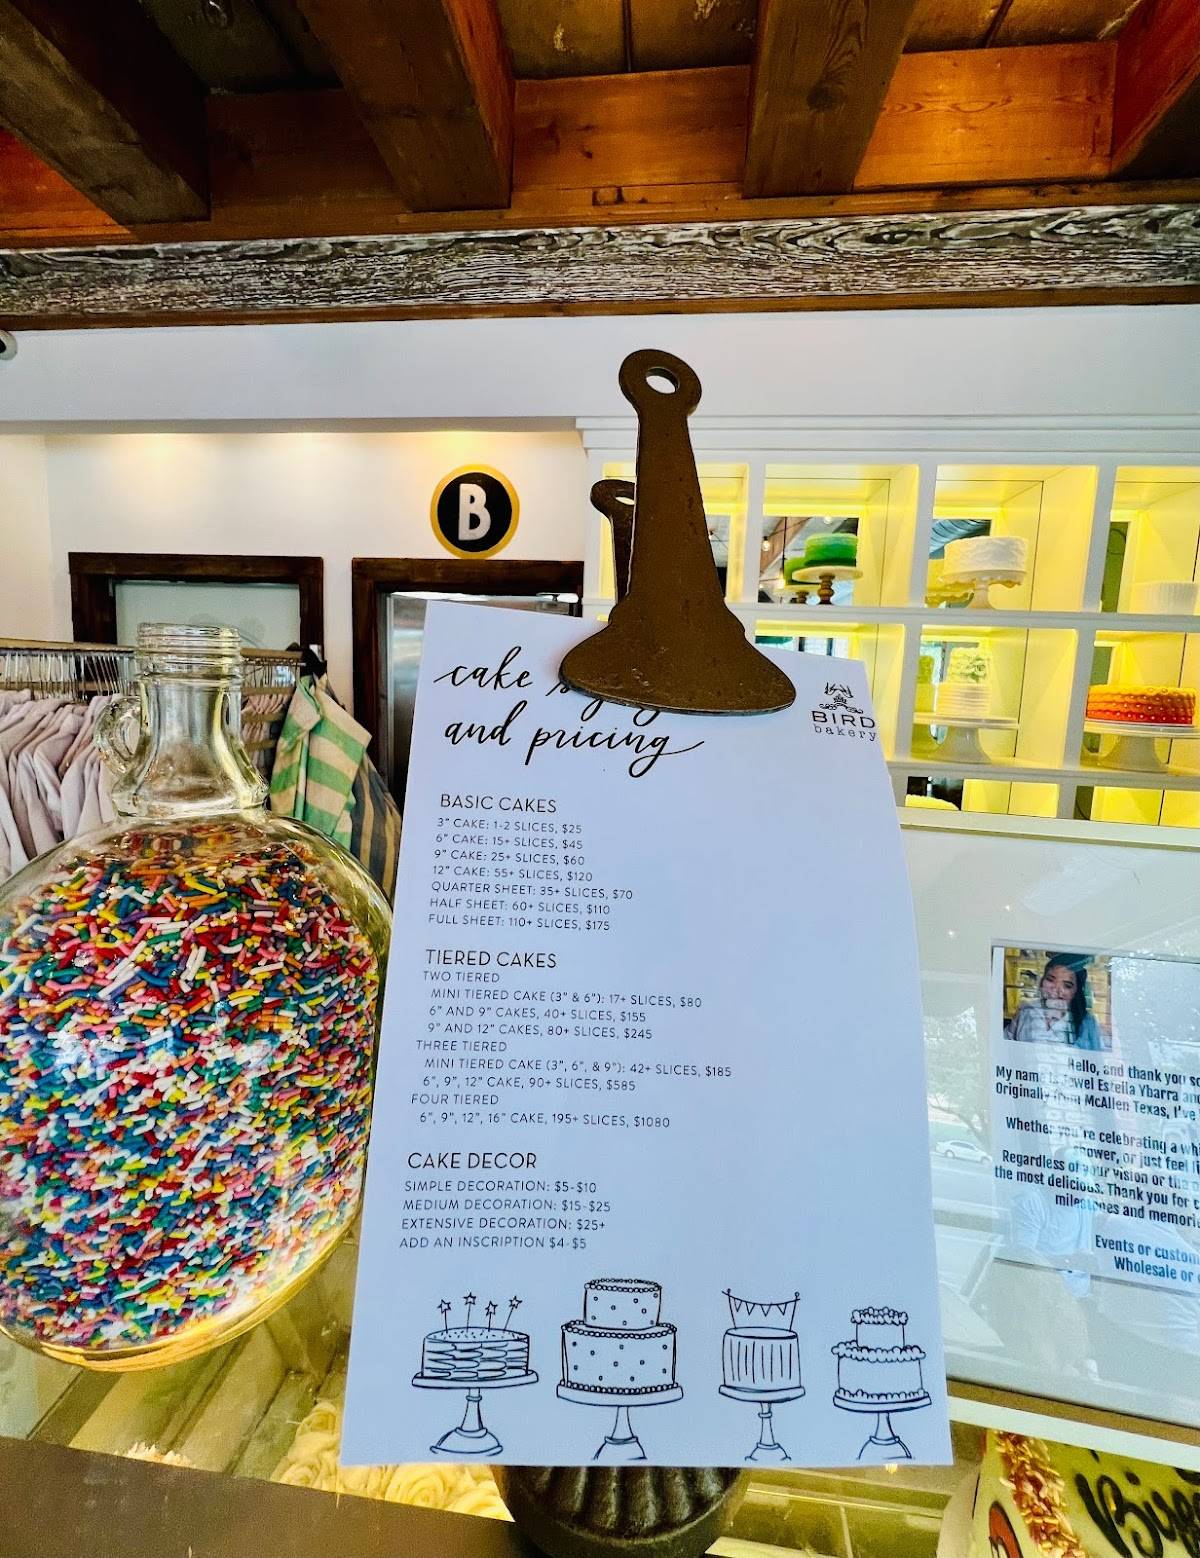 B
cake
and pricing
BIRD
bakery
BASIC CAKES
3" CAKE: 1-2 SLICES, $25
6" CAKE: 15+ SLICES, $45
9" CAKE: 25+ SLICES, $60
12" CAKE: 55+ SLICES, $120
QUARTER SHEET: 35+ SLICES, $70
HALF SHEET: 60+ SLICES, $110
FULL SHEET: 110+ SLICES, $175
TIERED CAKES
TWO TIERED
MINI TIERED CAKE (3" & 6"): 17+ SLICES, $80
6" AND 9" CAKES, 40+ SLICES, $155
9" AND 12" CAKES, 80+ SLICES, $245
THREE TIERED
MINI TIERED CAKE (3", 6", & 9"): 42+ SLICES, $185
6", 9", 12" CAKE, 90+ SLICES, $585
FOUR TIERED
6", 9", 12", 16" CAKE, 195+ SLICES, $1080
CAKE DECOR
SIMPLE DECORATION: $5-$10
MEDIUM DECORATION: $15-$25
EXTENSIVE DECORATION: $25+
ADD AN INSCRIPTION $4-$5
Hello, and thank you
My name is Jewel Estella Ybarra
Originally from McAllen Texas, I've
Whether you're celebrating a
shower, or just feel
Regardless of your vision or
the most delicious. Thank you for
milestones and
Events or custom
Wholesale or